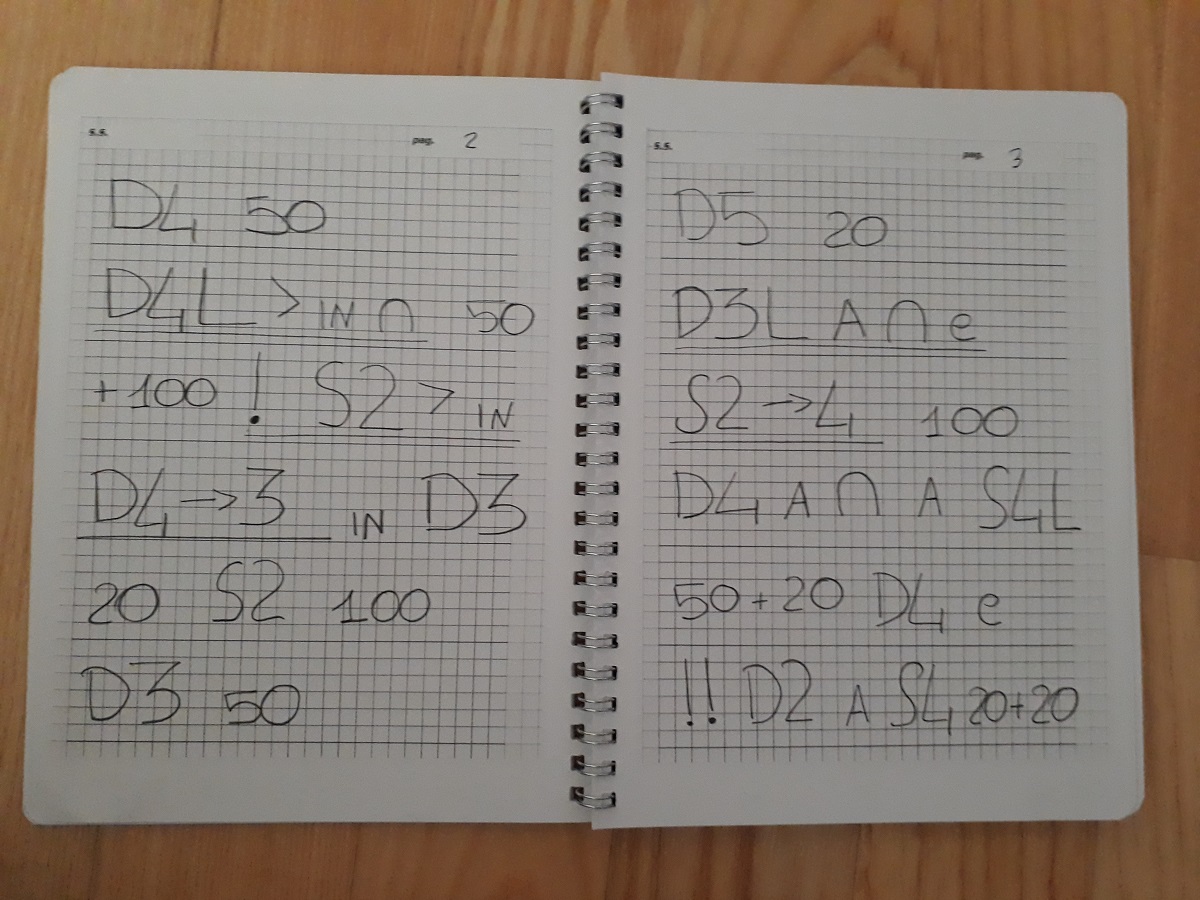 s.s. pag. 2
D4 50
D4L > IN ∩ 50
+100 ! S2 > IN
D4→3 IN D3
20 S2 100
D3 50
s.s. pag. 3
D5 20
D3L A ∩ e
S2→4 100
D4 A ∩ A S4L
50+20 D4 e
!! D2 A S4 20+20